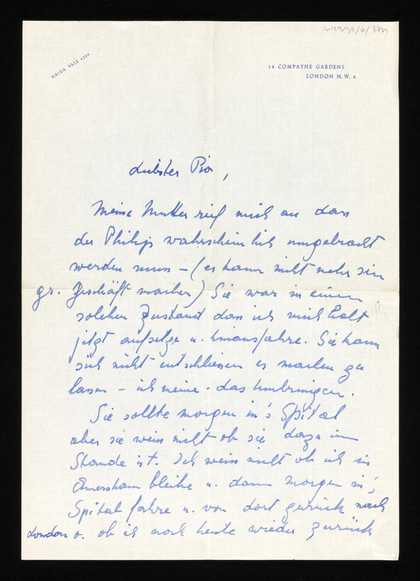 MAIDA VALE 4300
14 COMPAYNE GARDENS
LONDON N.W. 6
Liebster Pio,
Meine Mutter rief mich an dass
der Philip wahrscheinlich umgebracht
werden muss – (er kann nicht mehr sein
gr. Geschäft machen) Sie war in einem
solchen Zustand dass ich mich bald
jetzt aufsetze u. hinausfahre. Sie kann
sich nicht entschliessen es machen zu
lassen – ich meine das Umbringen.
Sie sollte morgen in's Spital
aber sie weiss nicht ob sie dazu im
Stande ist. Ich weiss nicht ob ich in
Amersham bleibe u. dann morgen in's
Spital fahre u. von dort zurück nach
London o. ob ich noch heute wieder zurück